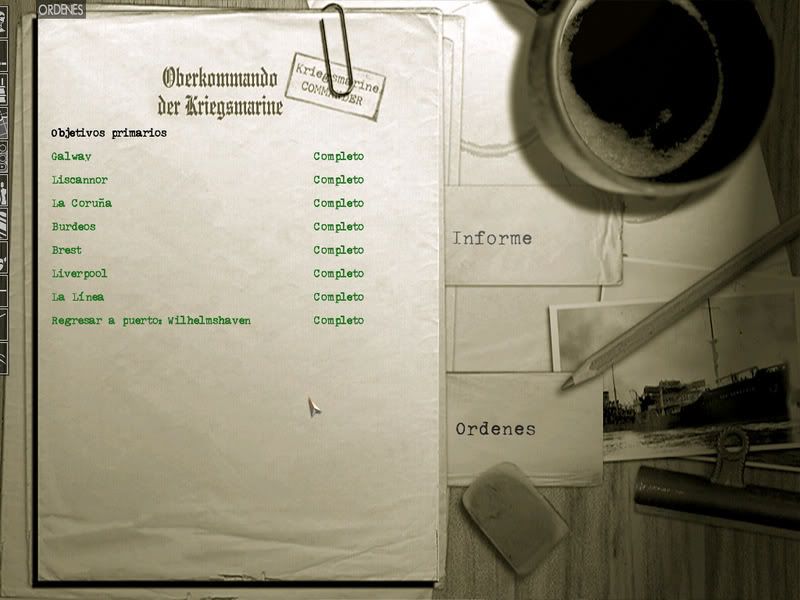 ORDENES
Oberkommando
der Kriegsmarine
Kriegsmarine
COMMANDER
Objetivos primarios
Galway Completo
Liscannor Completo
La Coruña Completo
Burdeos Completo
Brest Completo
Liverpool Completo
La Línea Completo
Regresar a puerto: Wilhelmshaven Completo
Informe
Ordenes